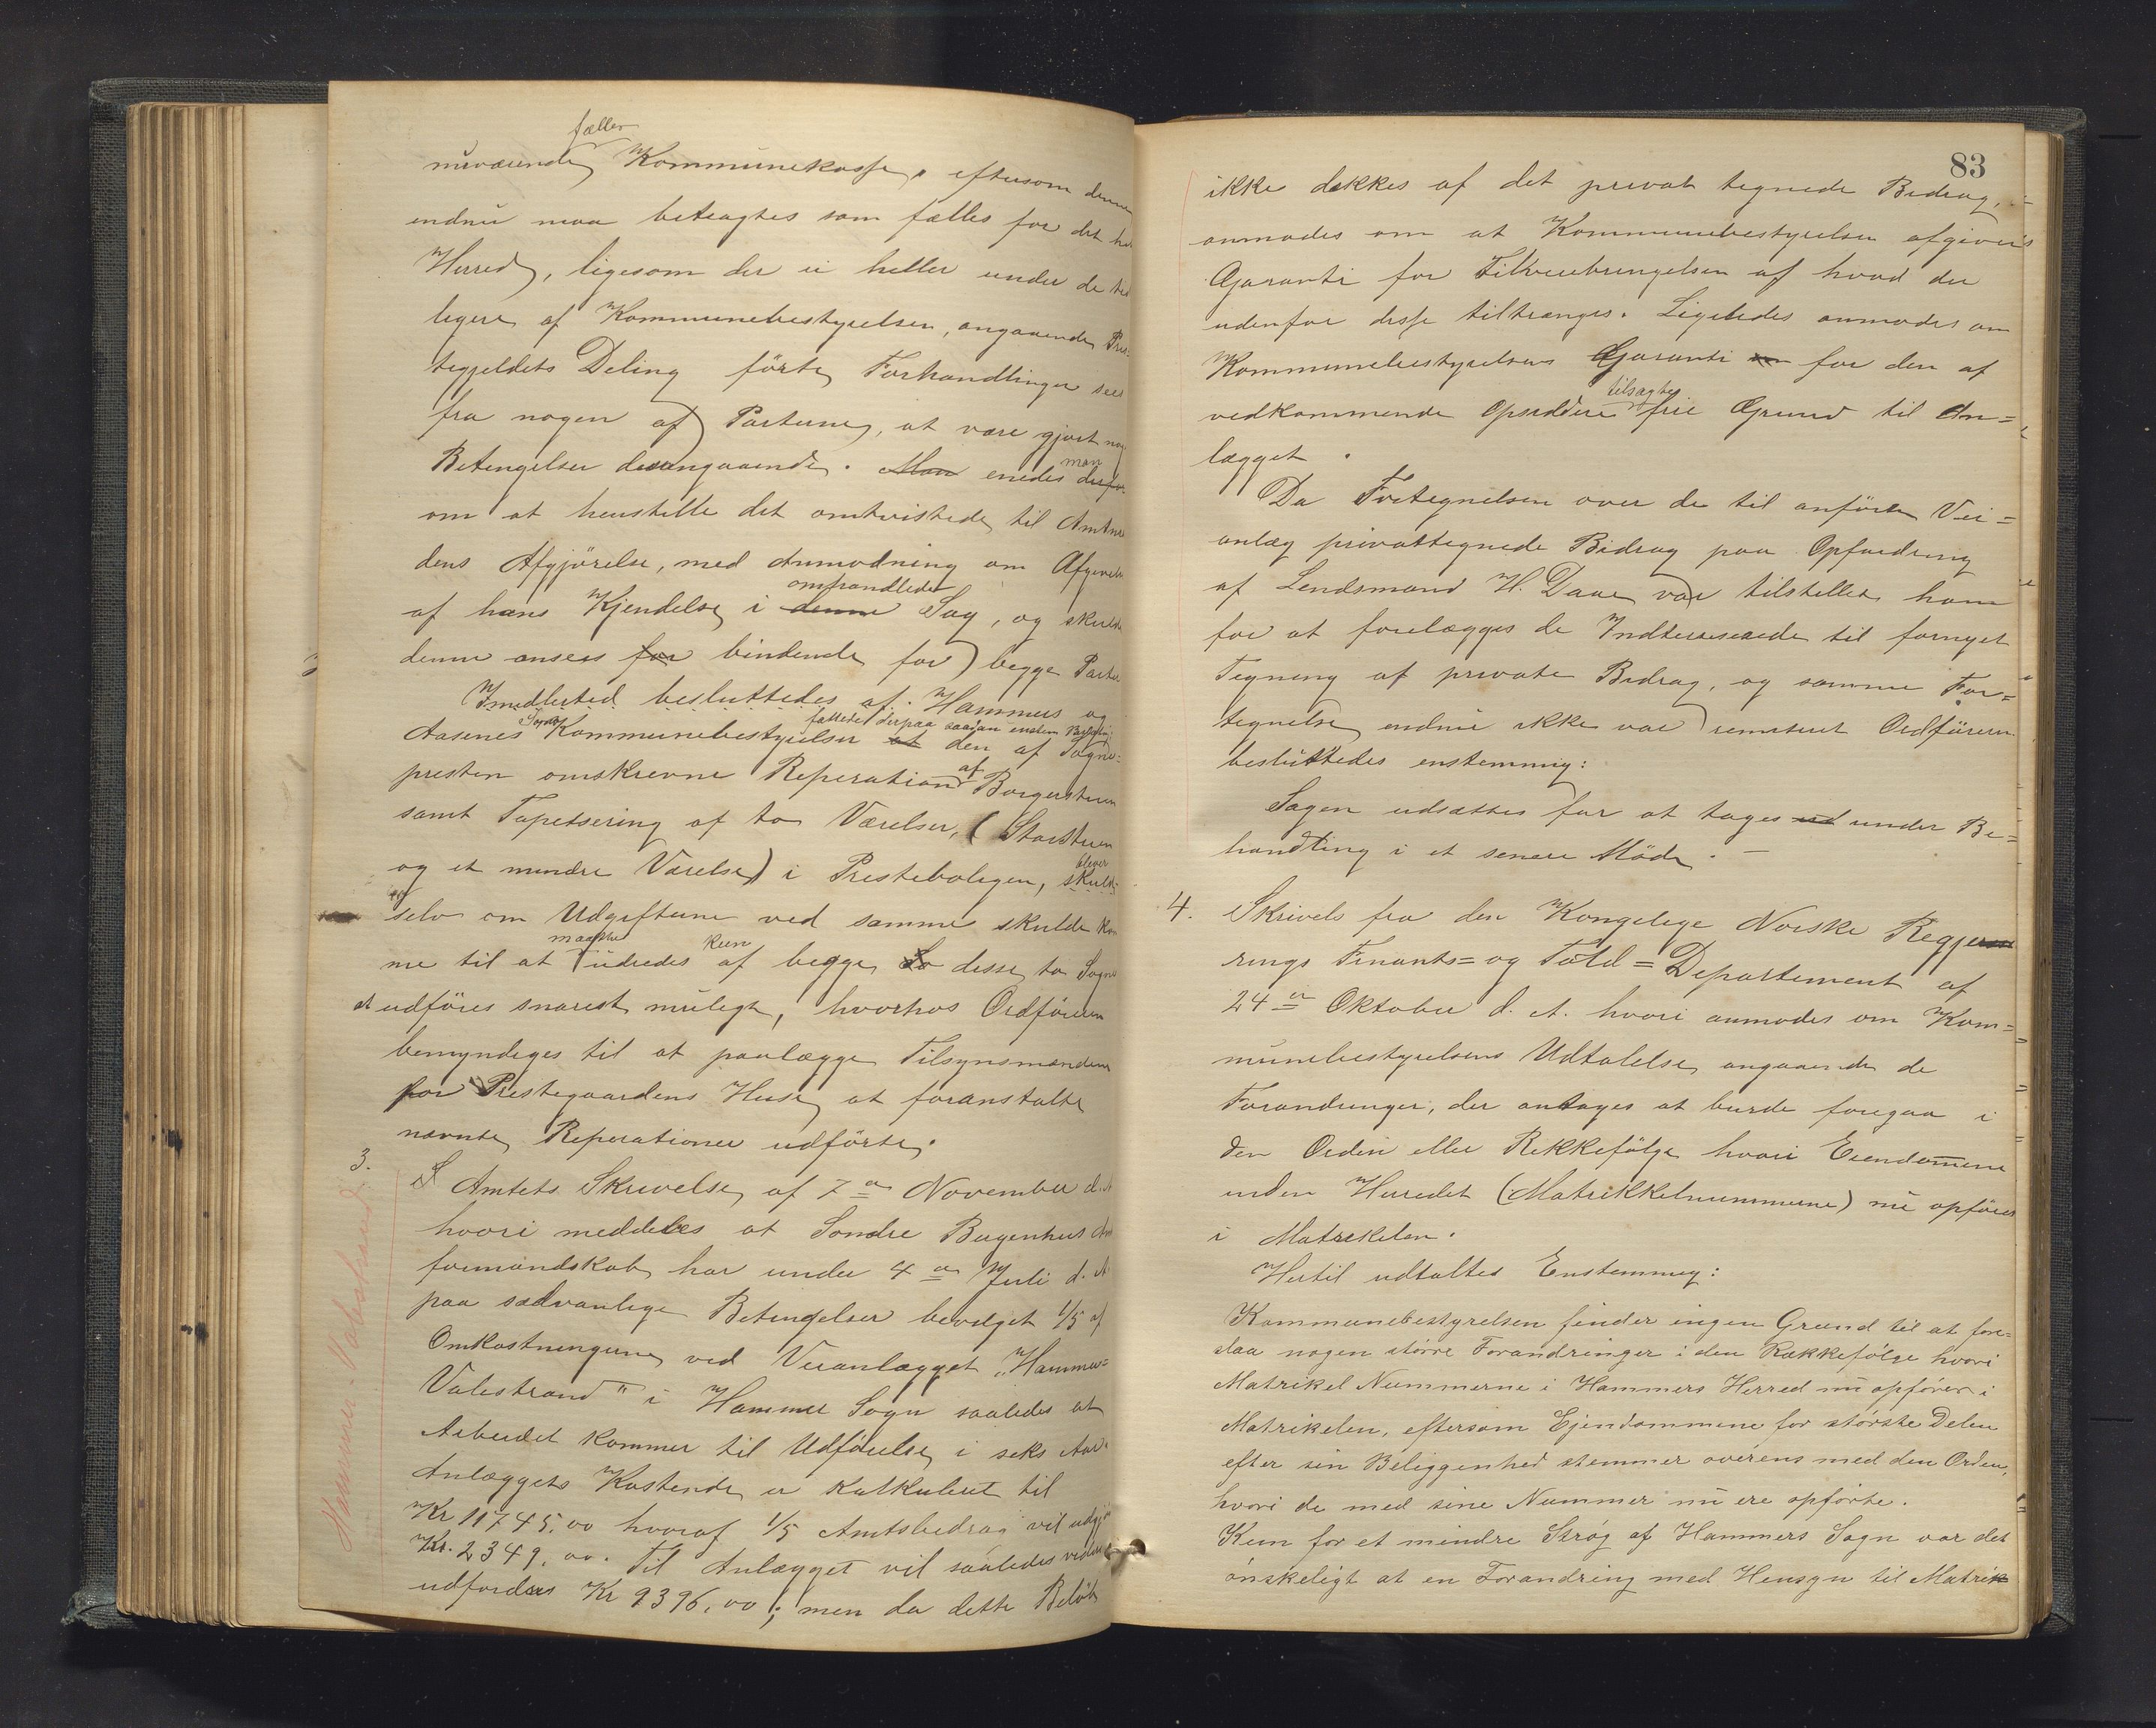 fælles
nuværende Kommunekasse, eftersom denne
endnu maa betragtes som fælles for det hele
Herred, ligesom der ei heller under de tid-
ligere af Kommunebestyrelsen, angaaende Præs-
tegjeldets Deling førte Forhandlinger sees
fra nogen af Parterne, at være gjort nog
Betingelser desangaaende. Man enedes man derfor
om at henstille det omtvistede til Amtman
dens Afgjørelse, med Anmodning om Afgivelse
af hans Kjendelse i denne omhandlede Sag, og skulde
denne ansees for bindende for begge Parter
Imidlertid besluttedes af Hammers og
Aasenes Sogns Kommunebestyrelser at fattedes derpaa saadan enstem Beslutning: den af Sogne-
presten omskrevne Reperation af Borgerstuen
samt Tapetsering af to Værelser, (Storstuen
og et mindre Værelse) i Prestebolegen, skulde bliver
og selv om Udgifterne ved samme skulde kom
me til at maaske udredes kun af begge So disse to Sogne
at udføres snarest muligt, hvorhos Ordføreren
bemyndiges til at paalægge Tilsynsmanden
for Prestegaardens Huse at foranstalte
nævnte Reperationer udførte.
3.
I Amtets Skrivelse af 7de November d. A.
hvori meddeles at Søndre Bergenhus Amts
formandskab har under 4de Juli d. A.
paa sædvanlige Betingelser bevilget 1/5 af
Omkostningerne ved Veianlægget "Hammer=
Valestrand" i Hammer Sogn saaledes at
Arbeidet kommer til Udførelse i seks Aar.
Anlæggets Kostende er kalkuleret til
Kr 11745,00 hvoraf 1/5 Amtsbidrag vil udgjøre
Kr. 2349,00. Til Anlægget vil saaledes videre
udfordres Kr 9396,00; men da dette Beløb
Hammer-Valestrand
83
ikke dækkes af det privat tegnede Bidrag,
anmodes om at Kommunebestyrelsen afgiver
Garanti for Tilveiebringelsen af hvad der
udenfor disse tiltrænges. Ligeledes anmodes om
Kommunebestyrelsens Garanti om for den af
vedkommende Opsiddere tilsagte frie Grund til An=
lægget.
Da Fortegnelsen over de til anførte Vei=
anlæg privattegnede Bidrag paa Opfordring
af Lendsmand H. Daae var tilstillet ham
for at forelægges de Indteresserede til fornyet
Tegning af private Bidrag, og samme For=
tegnelse endnu ikke var remiteret Ordføreren
besluttedes enstemmig:
Sagen udsættes for at tages ud under Be=
handling i et senere Møde. —
4. Skrivels fra den Kongelige Norske Regje
rings Finants= og Told=Departement af
24de Oktober d. A. hvori anmodes om Kom=
munebestyrelsens Udtalelse angaaende de
Forandringer, der antages at burde foregaa i
den Orden eller Rekkefølge hvori Eiendommene
inden Herredet (Matrikkelnummerne) nu opføres
i Matrikelen.
Hertil udtaltes Enstemmig:
Kommunebestyrelsen finder ingen Grund til at fore=
slaa nogen større Forandringer i den Rækkefølge hvori
Matrikel Nummerne i Hammers Herred nu opføres i
Matrikelen, eftersom Ejendommene for største Delen
efter sin Beliggenhed stemmer overens med den Orden,
hvori de med sine Nummer nu ere opførte.
Kun for et mindre Strøg af Hammers Sogn var det
ønskeligt at en Forandring med Hensyn til Matrik=